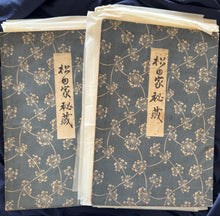 松田家秘蔵
松田家秘蔵